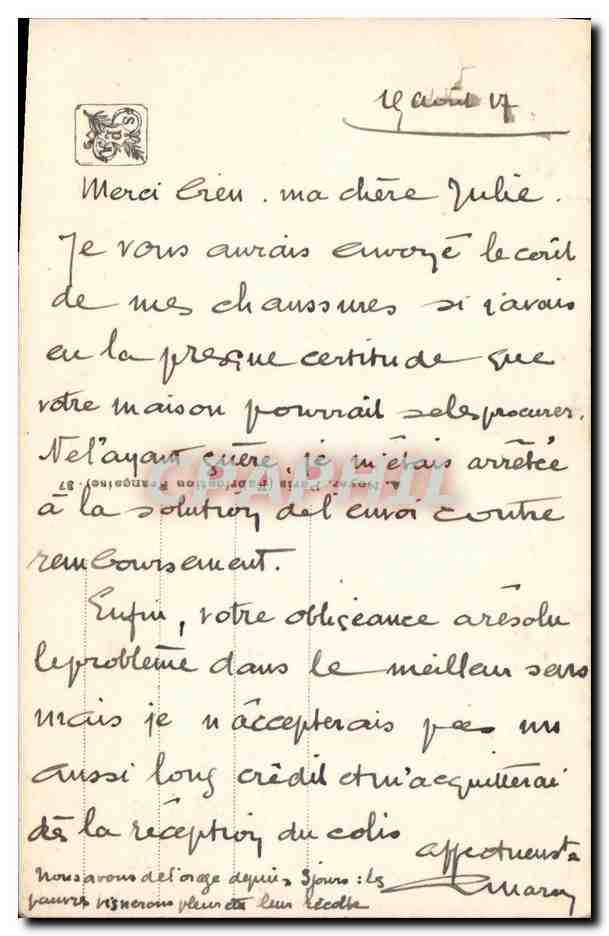 19 août 17
Merci bien, ma chère Julie.
Je vous aurais envoyé le coût
de mes chaussures si j'avais
eu la presque certitude que
votre maison pourrait se les procurer.
Ne l'ayant guère, je m'étais arrêtée
A. Noyer, Paris (Fabrication Française) - 87
à la solution de l'envoi contre
remboursement.
Enfin, votre obligeance a résolu
le problème dans le meilleur sens
mais je n'accepterais pas un
aussi long crédit et m'acquitterai
dès la réception du colis
affectueusᵗ
Nous avons de l'orage depuis 3 jours : les
pauvres vignerons pleurent leur récolte
CPAPHIL